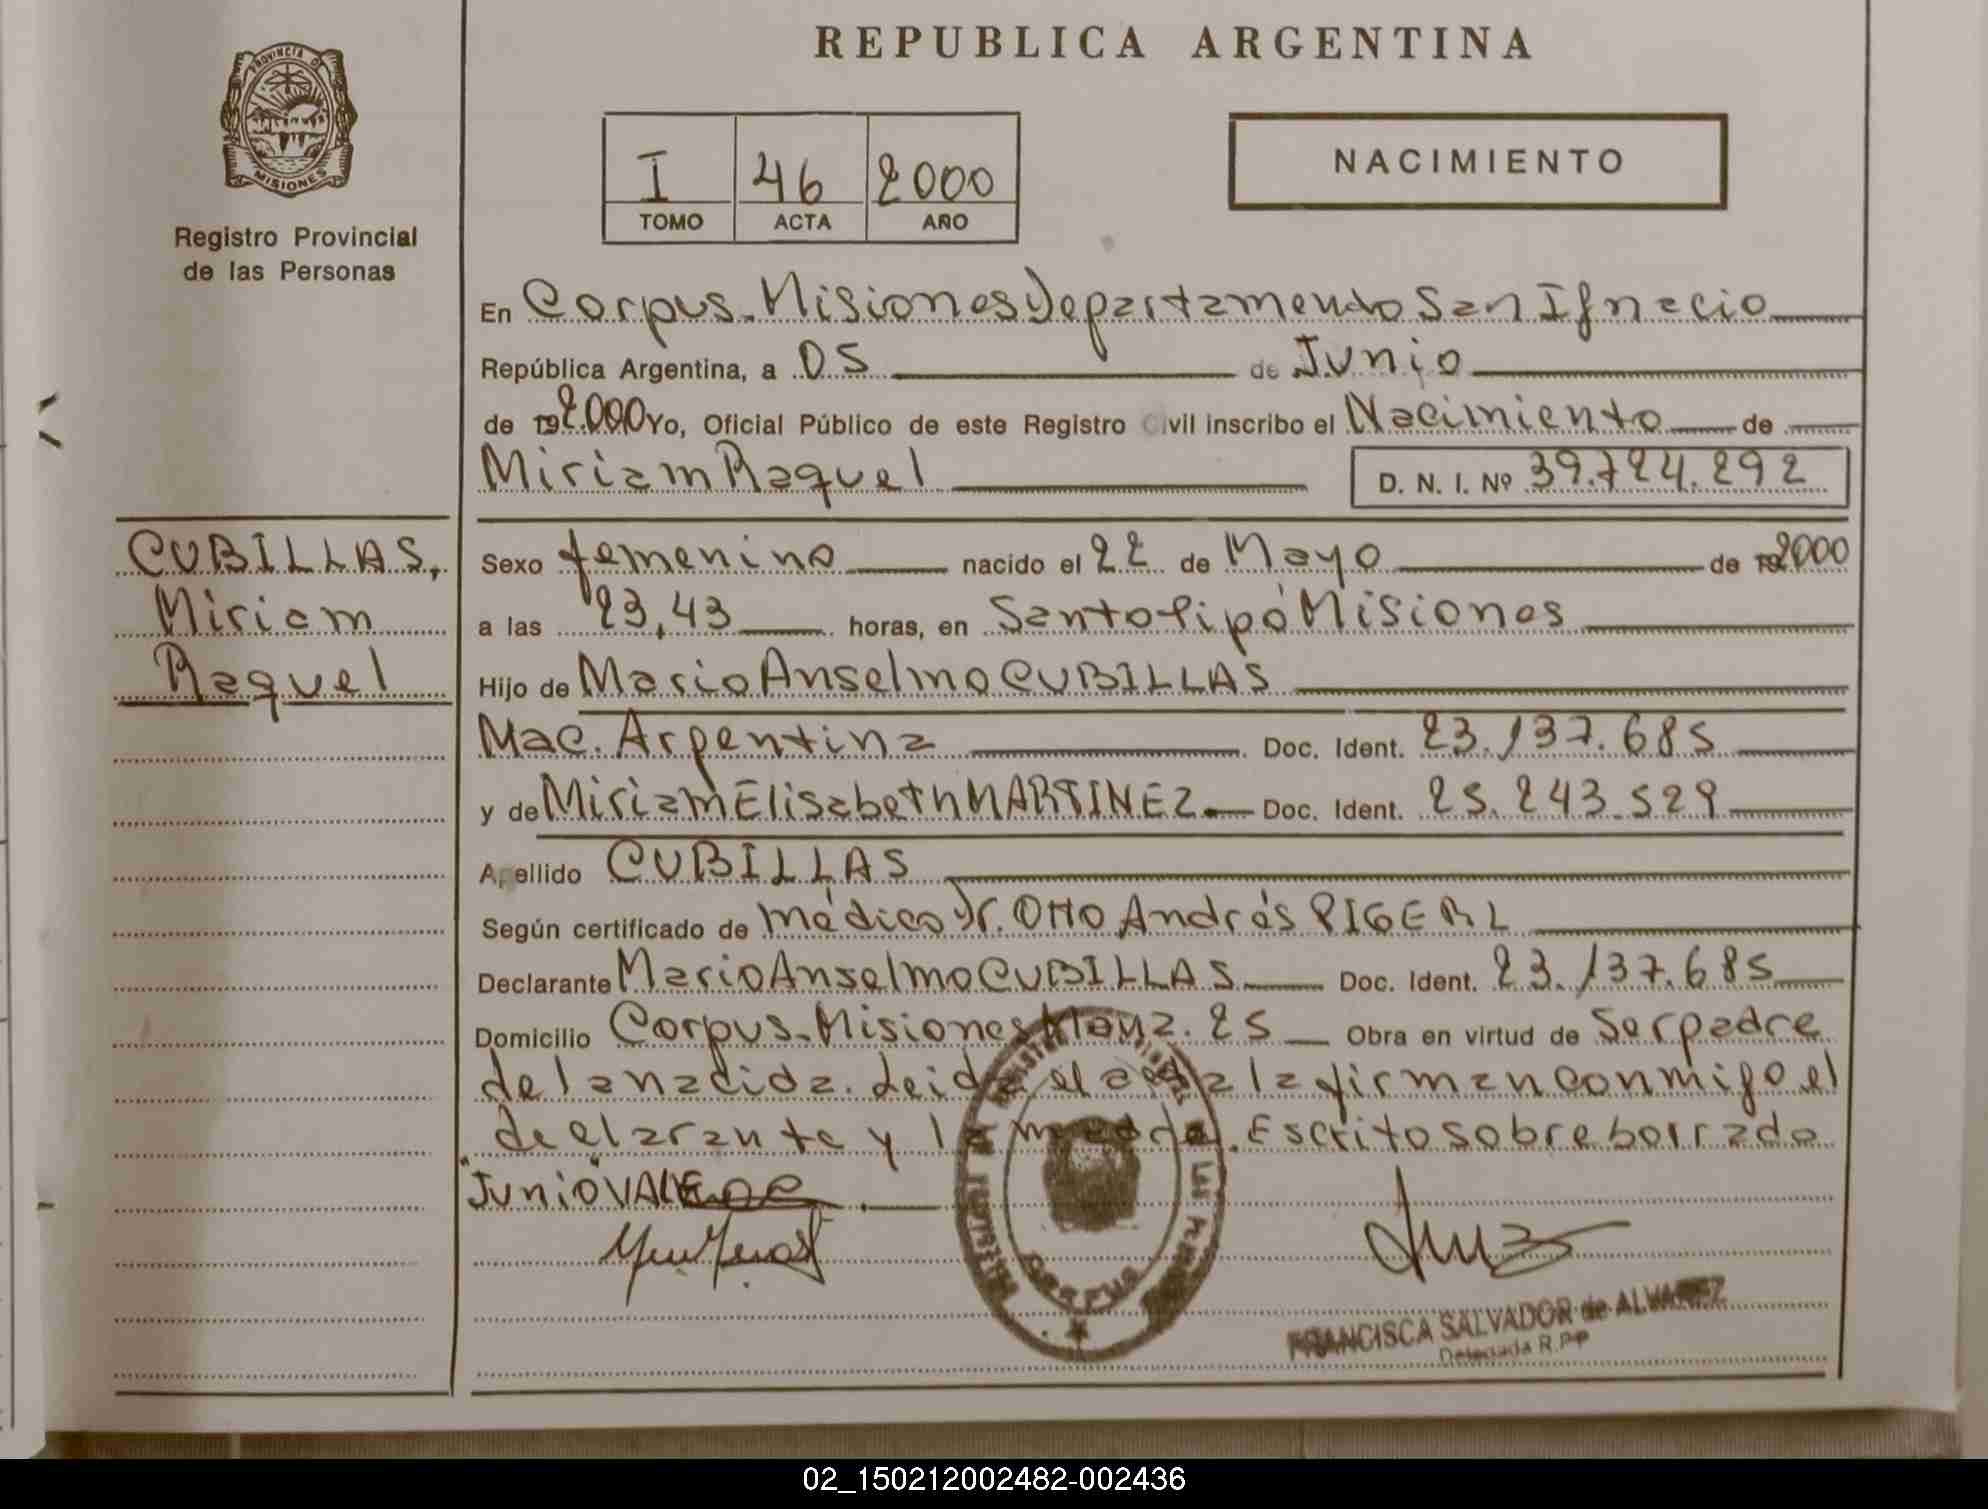 REPUBLICA ARGENTINA
PROVINCIA D
MISIONES
Registro Provincial
de las Personas
I 46 2000
TOMO ACTA AÑO
NACIMIENTO
En Corpus-Misiones Departamento San Ignacio
República Argentina, a 05 de Junio
de 192000 Yo, Oficial Público de este Registro Civil inscribo el Nacimiento de
Miriam Raquel D. N. I. Nº 39.724.292
CUBILLAS,
Miriam
Raquel
Sexo femenino nacido el 22 de Mayo de 192000
a las 23,43 horas, en Santo Pipó Misiones
Hijo de Mario Anselmo CUBILLAS
Nac. Argentina Doc. Ident. 23.137.685
y de Miriam Elisabeth MARTINEZ Doc. Ident. 25.243.529
Apellido CUBILLAS
Según certificado de médico Dr. Otto Andrés PIGERL
Declarante Mario Anselmo CUBILLAS Doc. Ident. 23.137.685
Domicilio Corpus-Misiones Manz. 25 Obra en virtud de Ser padre
de la nacida. Leida el acta la firman conmigo el
declarante y la madre. Escrito sobre borrado
"Junio" VALE
CORPUS
FRANCISCA SALVADOR de ALVAREZ
Delegada R.P.P
02_150212002482-002436